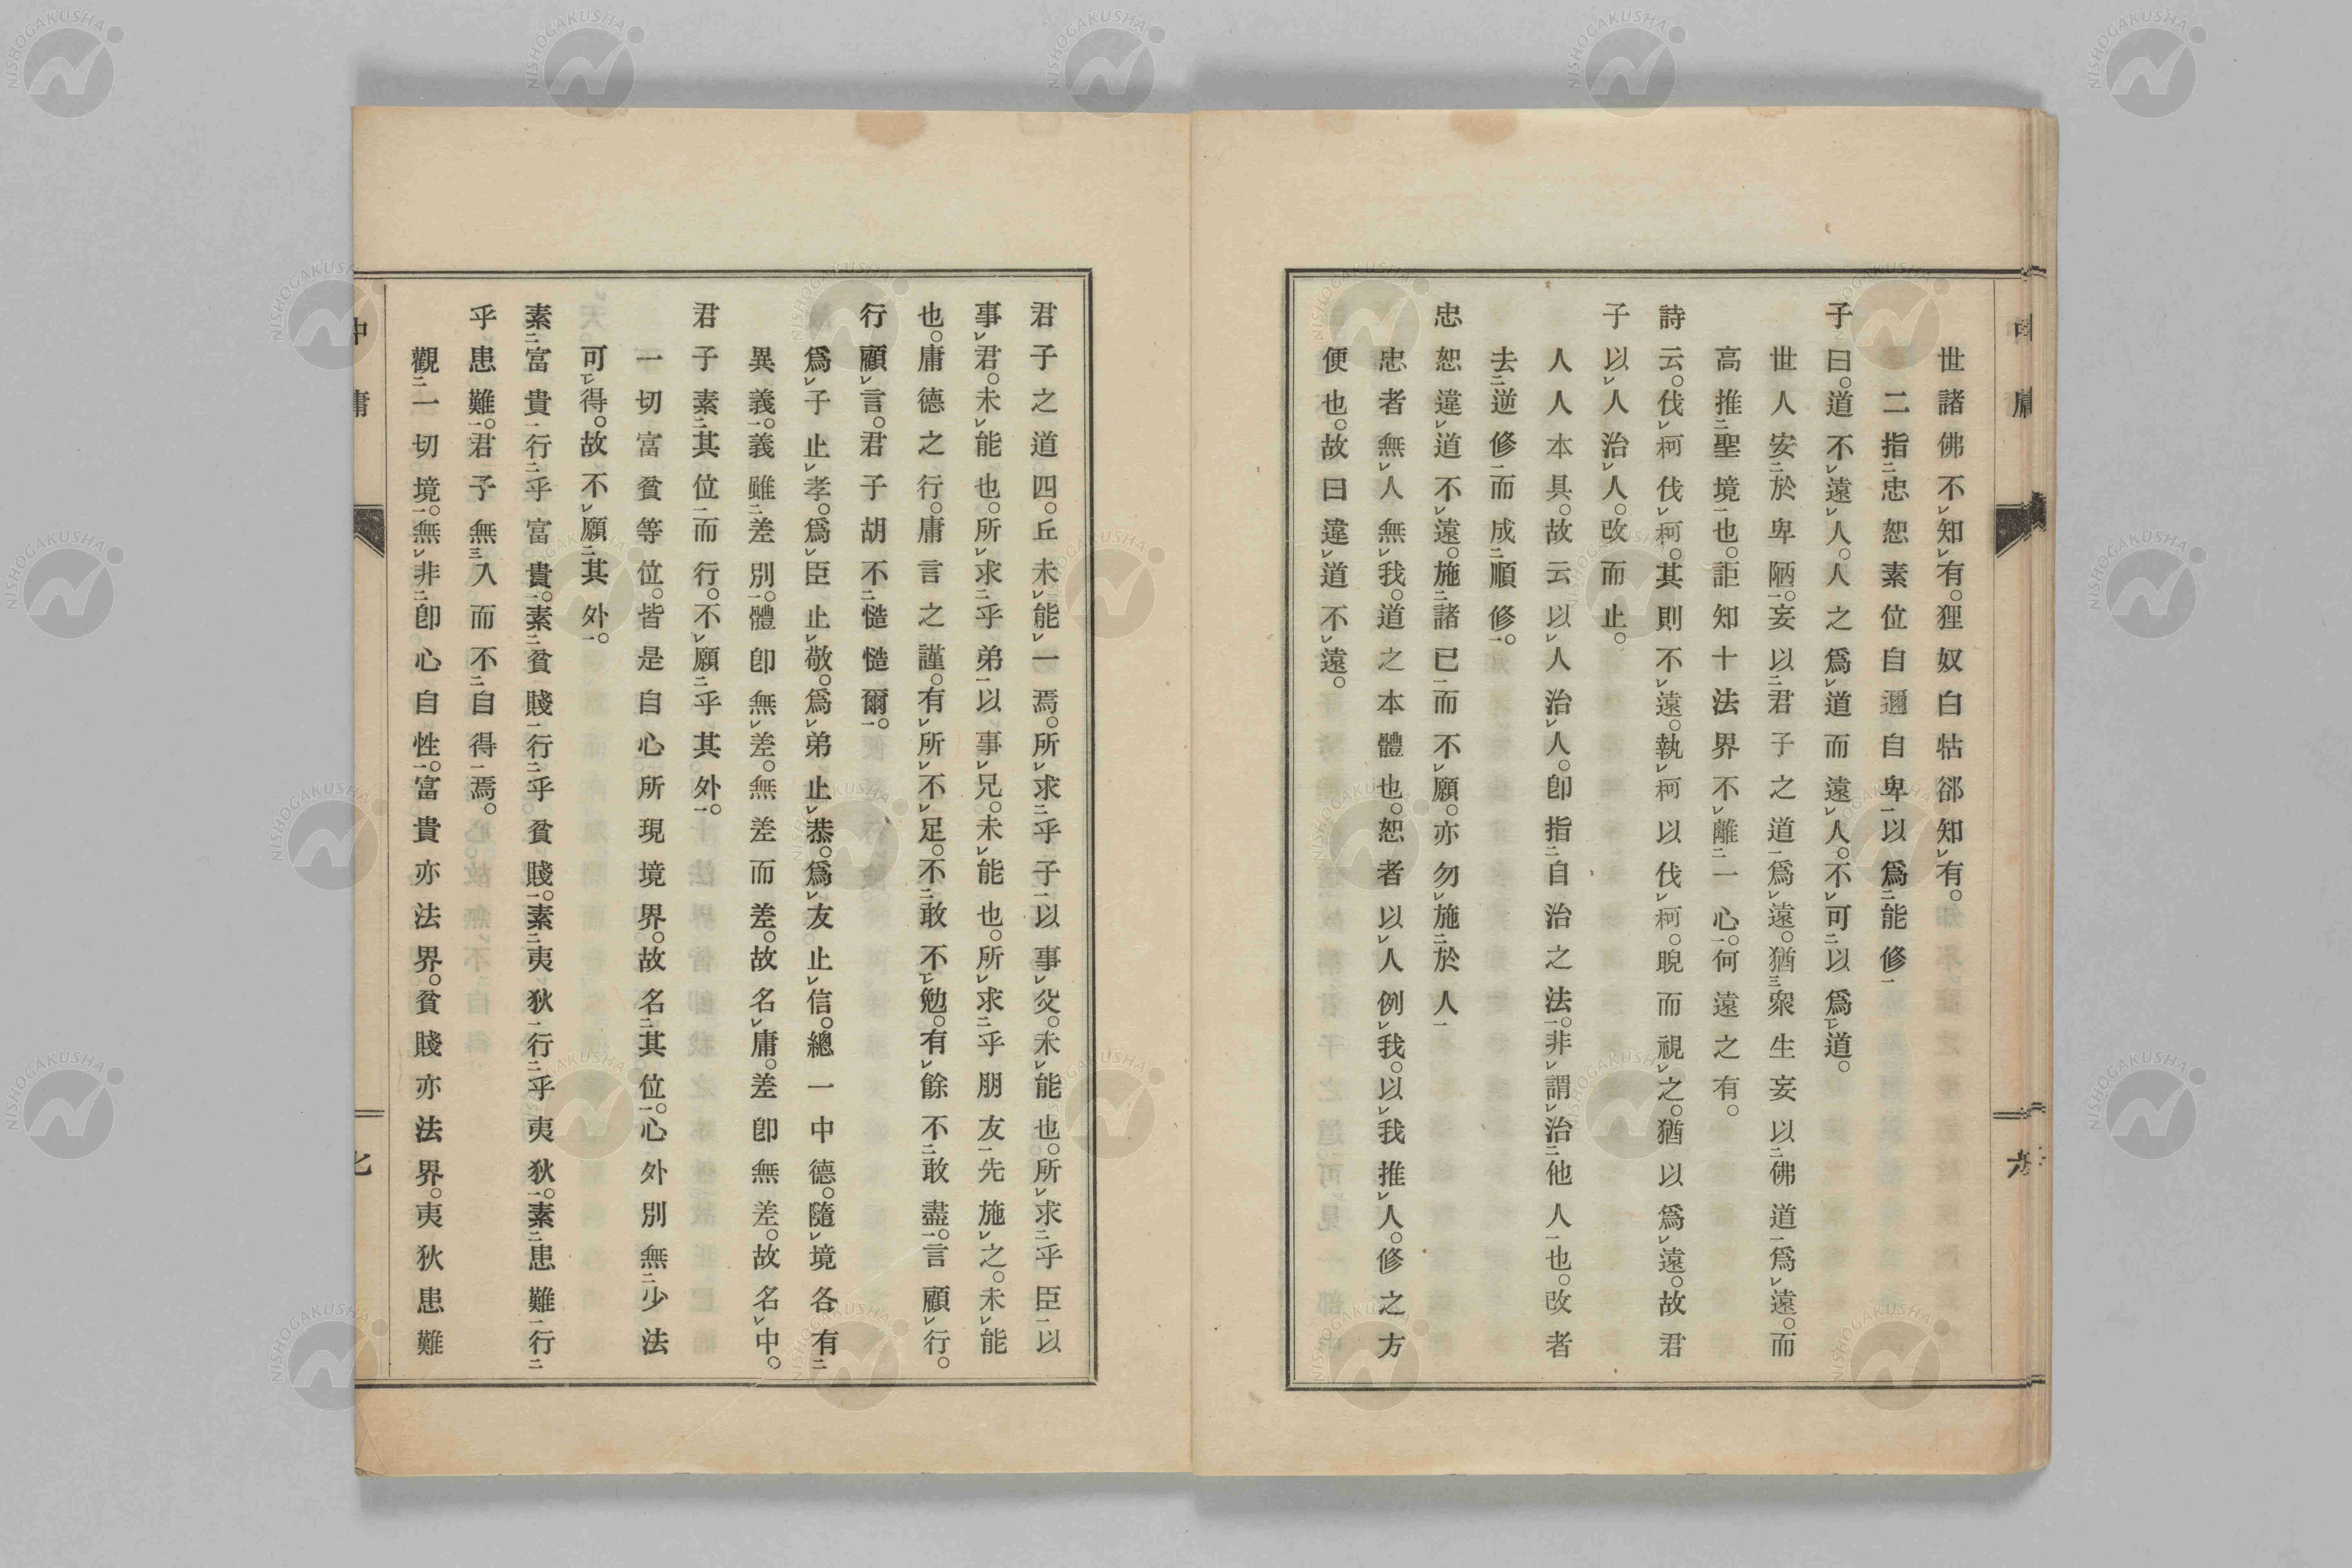 世諸佛不㆑知㆑有。狸奴白牯郤知㆑有。
二指㆓忠恕素位自邇自卑㆒以爲㆓能修㆒
子曰。道不㆑遠㆑人。人之爲㆑道而遠㆑人。不㆑可㆓以爲㆑道。
世人安㆓於卑陋㆒。妄以㆓君子之道㆒爲㆑遠。猶㆔衆生妄以㆓佛道㆒爲㆑遠。而
高推㆓聖境㆒也。詎知十法界不㆑離㆓一心㆒。何遠之有。
詩云。伐㆑柯伐㆑柯。其則不㆑遠。執㆑柯以伐㆑柯。睨而視㆑之。猶以爲㆑遠。故君
子以㆑人治㆑人。改而止。
人人本具。故云以㆑人治㆑人。卽指㆓自治之法㆒。非㆑謂㆑治㆓他人㆒也。改者
去㆓逆修㆒而成㆓順修㆒。
忠恕違㆑道不㆑遠。施㆓諸己㆒而不㆑願。亦勿㆑施㆓於人㆒
忠者無㆑人無㆑我。道之本體也。恕者以㆑人例㆑我。以㆑我推㆑人。修之方
便也。故曰違㆑道不㆑遠。
君子之道四。丘未㆑能㆑一焉。所㆑求㆓乎子㆒以事㆑父。未㆑能也。所㆑求㆓乎臣㆒以
事㆑君。未㆑能也。所㆑求㆓乎弟㆒以事㆑兄。未㆑能也。所㆑求㆓乎朋友㆒先施㆑之。未㆑能
也。庸德之行。庸言之謹。有㆑所㆑不㆑足。不㆓敢不㆑勉。有㆑餘不㆓敢盡㆒。言顧㆑行。
行顧㆑言。君子胡不㆓慥慥爾㆒。
爲㆑子止㆑孝。爲㆑臣止㆑敬。爲㆑弟止㆑恭。爲㆑友止㆑信。總一中德。隨㆑境各有㆓
異義㆒。義雖㆓差別㆒。體卽無㆑差。無差而差。故名㆑庸。差卽無差。故名㆑中。
君子素㆓其位㆒而行。不㆑願㆓乎其外㆒。
一切富貧等位。皆是自心所現境界。故名㆓其位㆒。心外別無㆓少法
可㆑得。故不㆑願㆓其外㆒。
素㆓富貴㆒行㆓乎富貴㆒。素㆓貧賤㆒行㆓乎貧賤㆒。素㆓夷狄㆒行㆓乎夷狄㆒。素㆓患難㆒行㆓
乎患難㆒。君子無㆔入而不㆓自得㆒焉。
觀㆓一切境㆒。無㆑非㆓卽心自性㆒。富貴亦法界。貧賤亦法界。夷狄患難
中庸